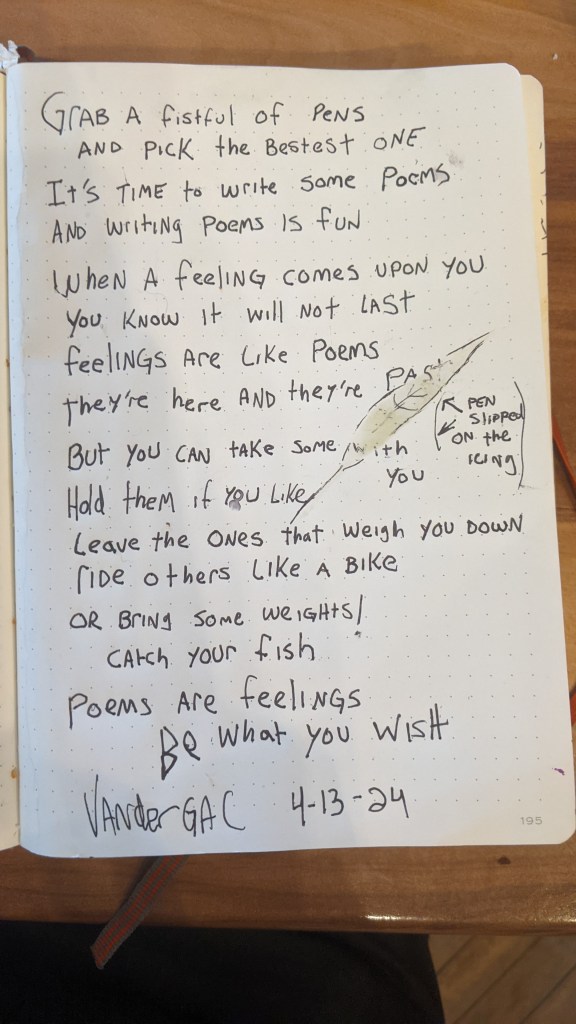 GrAB A fistful of PENS
AND PICK the Bestest ONE
It's TIME to write some Poems
AND writing Poems IS fUN
WheN A feeling comes UPON you
you KNOW it will Not LAST
feelings Are Like Poems
they're here AND they're PAST
But you CAN take Some with
you
Hold them if you Like
Leave the ONes that weigh you DOWN
ride others Like A Bike
OR Bring Some weights/
CAtch your fish
Poems Are feelings
Be What you WISH
VANderGAC 4-13-24
PEN
Slipped
ON the
icing
195